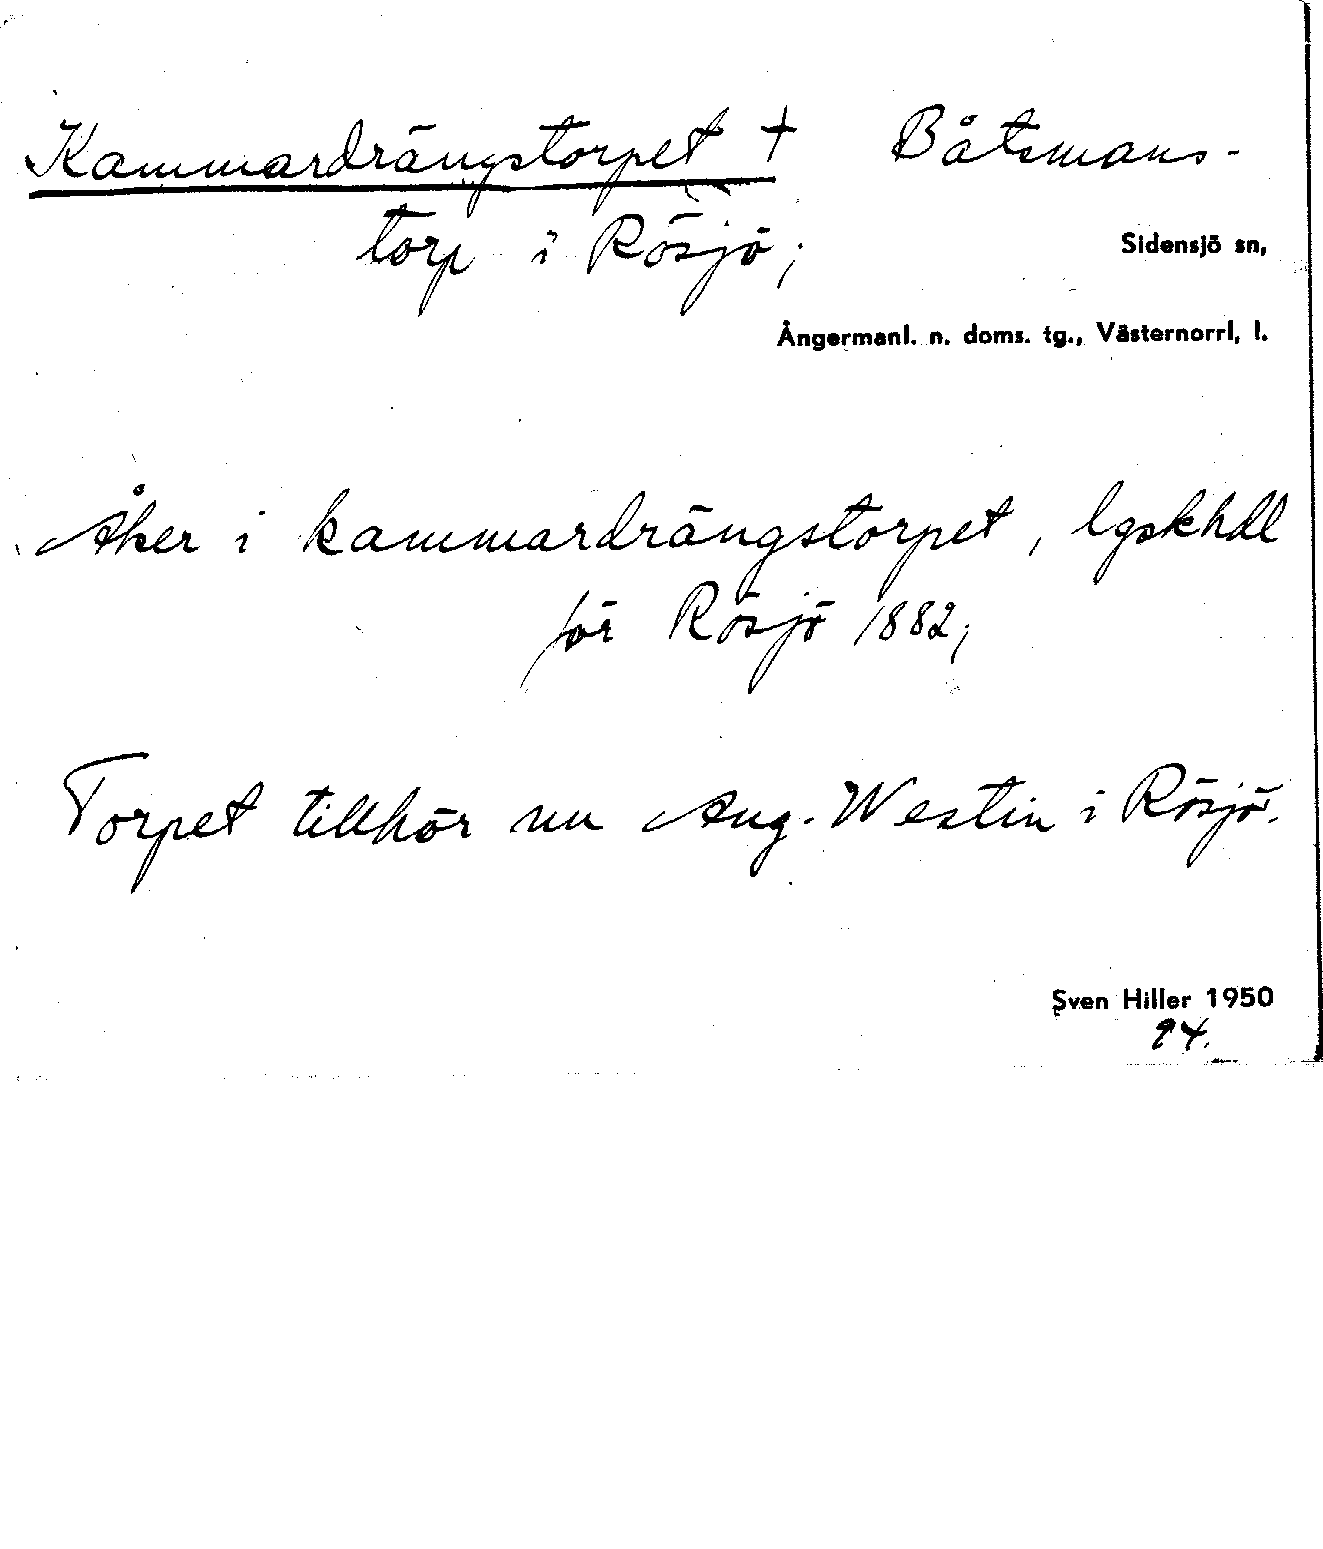 Kammardrängstorpet + Båtsmans-
torp i Rösjö;
Sidensjö sn,
Ångermanl. n. doms. tg., Västernorrl, l.
Åker i kammardrängstorpet, lgskhdl
för Rösjö 1882;
Torpet tillhör nu Aug. Westin i Rösjö.
Sven Hiller 1950
94.